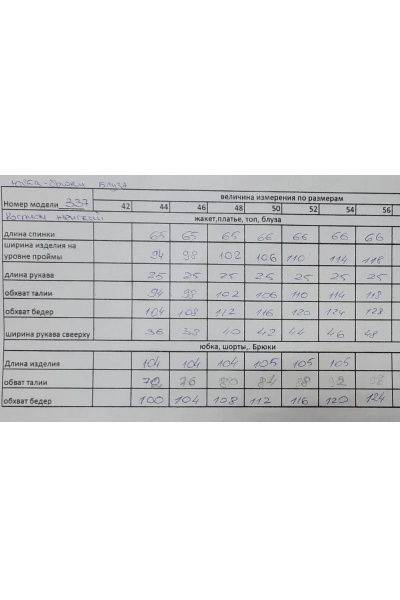 юбка-брюки блуза
величина измерения по размерам
Номер модели 337 42 44 46 48 50 52 54 56
Костюм женский жакет,платье, топ, блуза
длина спинки 65 65 65 66 66 66 66
ширина изделия на
уровне проймы 94 98 102 106 110 114 118
длина рукава 25 25 25 25 25 25 25
обхват талии 94 98 102 106 110 114 118
обхват бедер 104 108 112 116 120 124 128
ширина рукава свеерху 36 38 40 42 44 46 48
юбка, шорты,. Брюки
Длина изделия 104 104 104 105 105 105
обват талии 76 80 84
обхват бедер 100 104 108 112 116 120 124